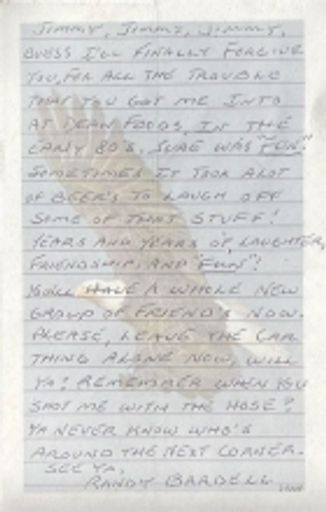 JIMMY, JIMMY, JIMMY,
GUESS I'LL FINALLY FORGIVE
YOU, FOR ALL THE TROUBLE
THAT YOU GOT ME INTO
AT DEAN FOODS, IN THE
EARLY 80'S, SURE WAS "FUN".
SOMETIMES IT TOOK A LOT
OF BEER'S TO LAUGH OFF
SOME OF THAT STUFF!
YEARS AND YEARS OF, LAUGHTER,
FRIENDSHIP, AND "FUN"!
YOU'LL HAVE A WHOLE NEW
GROUP OF FRIEND'S NOW.
PLEASE, LEAVE THE CAR
THING ALONE NOW, WILL
YA! REMEMBER WHEN YOU
SHOT ME WITH THE HOSE?
YA NEVER KNOW WHO'S
AROUND THE NEXT CORNER.
SEE YA,
RANDY BARDELL